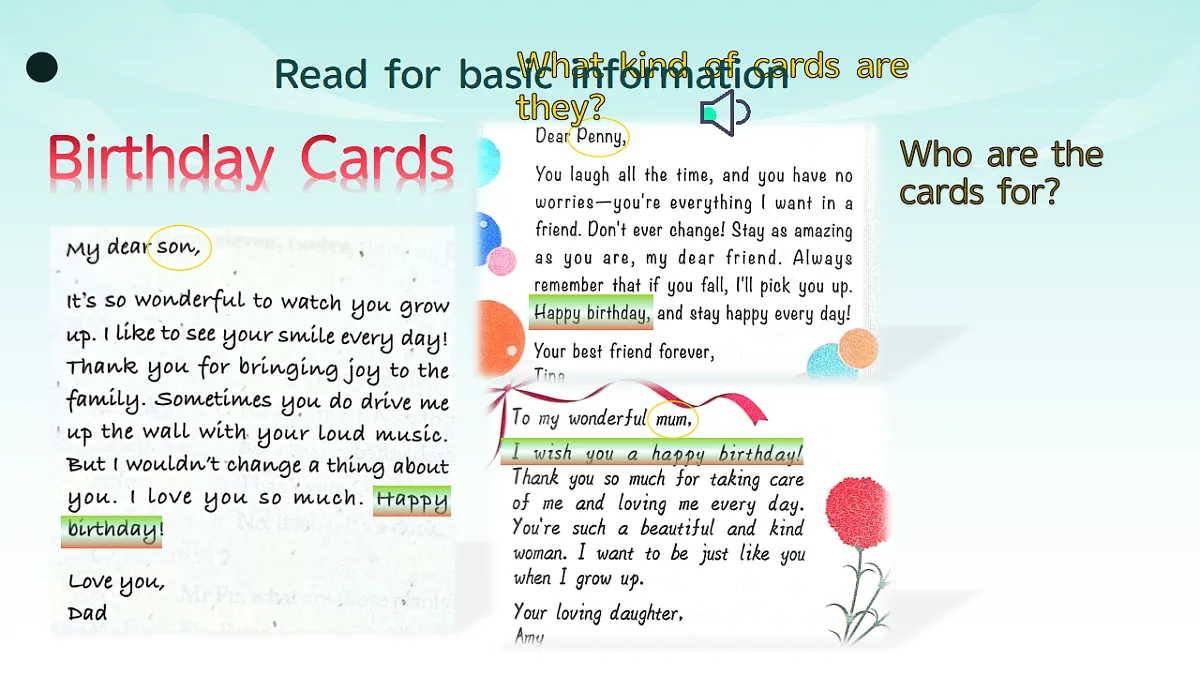 Read for basic information
What kind of cards are
they?
Birthday Cards
Who are the
cards for?
My dear son,
It's so wonderful to watch you grow
up. I like to see your smile every day!
Thank you for bringing joy to the
family. Sometimes you do drive me
up the wall with your loud music.
But I wouldn't change a thing about
you. I love you so much. Happy
birthday!
Love you,
Dad
Dear Penny,
You laugh all the time, and you have no
worries—you're everything I want in a
friend. Don't ever change! Stay as amazing
as you are, my dear friend. Always
remember that if you fall, I'll pick you up.
Happy birthday, and stay happy every day!
Your best friend forever,
Tina
To my wonderful mum,
I wish you a happy birthday!
Thank you so much for taking care
of me and loving me every day.
You're such a beautiful and kind
woman. I want to be just like you
when I grow up.
Your loving daughter,
Amy